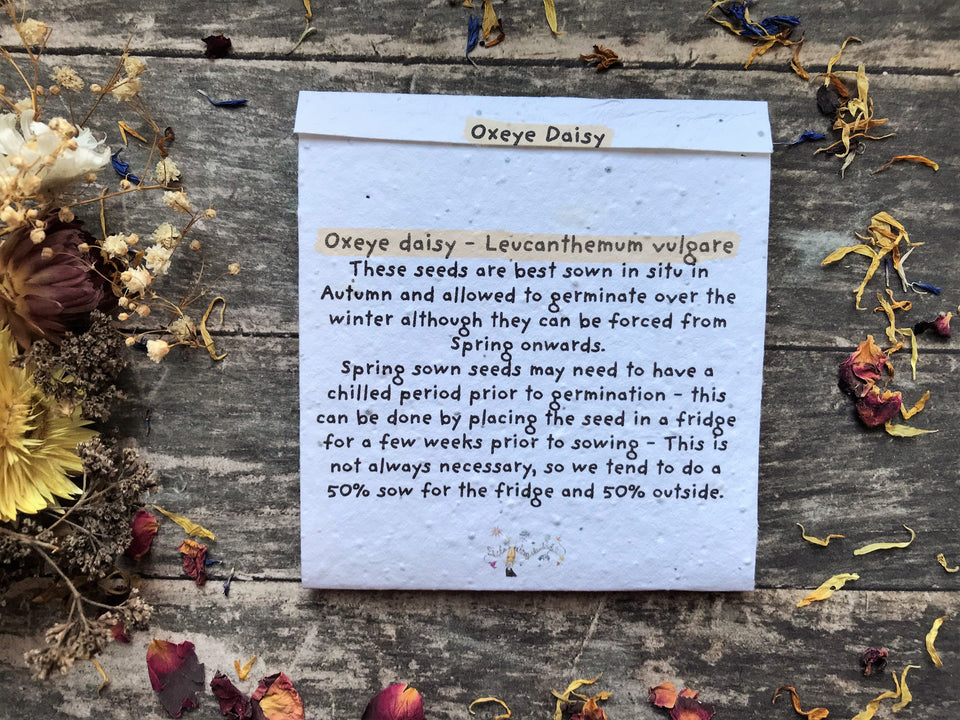 Oxeye Daisy
Oxeye daisy - Leucanthemum vulgare
These seeds are best sown in situ in
Autumn and allowed to germinate over the
winter although they can be forced from
Spring onwards.
Spring sown seeds may need to have a
chilled period prior to germination - this
can be done by placing the seed in a fridge
for a few weeks prior to sowing - This is
not always necessary, so we tend to do a
50% sow for the fridge and 50% outside.